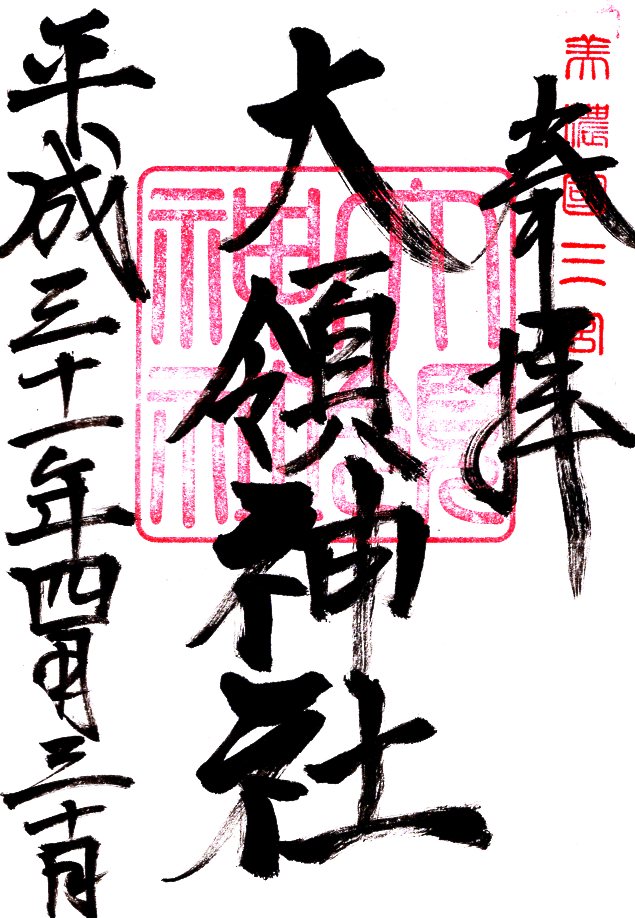 美濃國三宮
奉拝
大領神社
大領神社
平成三十一年四月三十日